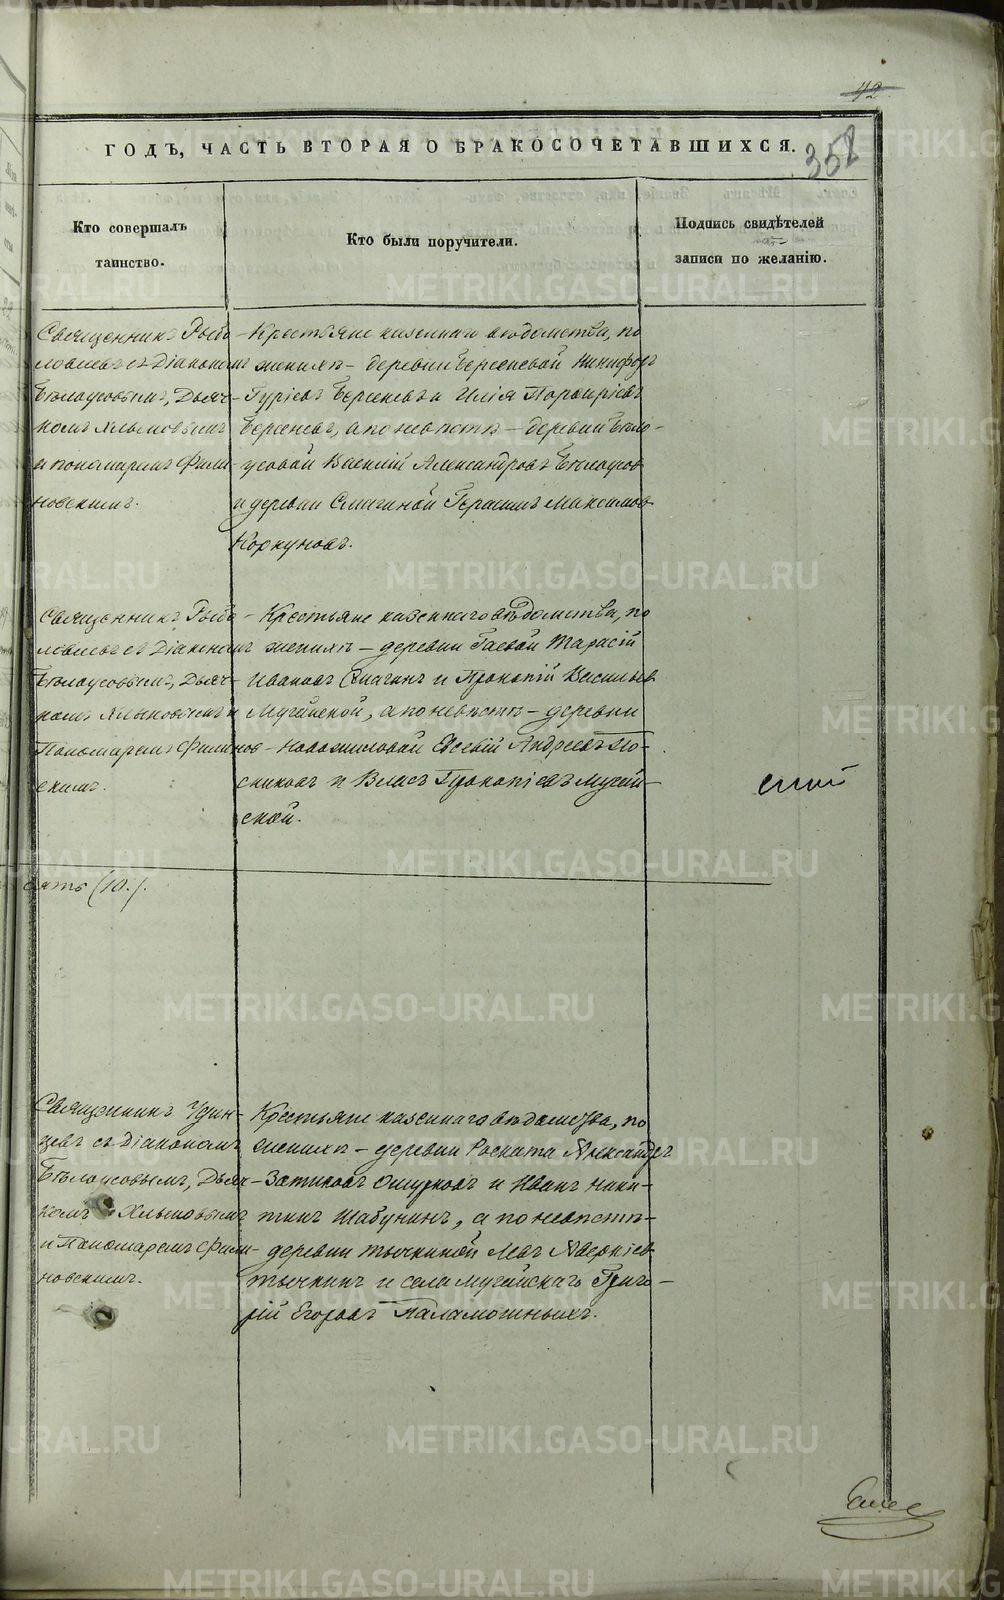 42
358
ГОДЪ, ЧАСТЬ ВТОРАЯ О БРАКОСОЧЕТАВШИХСЯ.
Кто совершалъ
таинство.
Кто были поручители.
Подпись свидѣтелей
записи по желанію.
Священникъ Рыбо-
ловлевъ съ Діакономъ
Бѣлоусовымъ, Дьяч-
комъ Хлыновымъ
и пономаремъ Фили-
новскимъ.
Крестьяне казеннаго вѣдомства, по
женихѣ – деревни Берсеневой Никифоръ
Гуріевъ Берсеневъ и Илія Порфиріевъ
Берсеневъ, а по невѣстѣ – деревни Бѣло-
усовой Василій Александровъ Бѣлоусовъ
и деревни Смагиной Герасимъ Максимовъ
Коркуновъ.
Священникъ Рыбо-
ловлевъ съ Діакономъ
Бѣлоусовымъ, Дьяч-
комъ Хлыновымъ и
Пономаремъ Филинов-
скимъ.
Крестьяне казеннаго вѣдомства, по
женихѣ – деревни Гаевой Тарасій
Ивановъ Смагинъ и Прокопій Васильевъ
Мугайской, а по невѣстѣ – деревни
Новожиловой Евсевій Андреевъ По-
сниковъ и Власъ Прокопіевъ Мугай-
ской.
ской
сять (10.).
Священникъ Удин-
цевъ съ Діакономъ
Бѣлоусовымъ, Дьяч-
комъ Хлыновымъ
и Пономаремъ Фили-
новскимъ.
Крестьяне казеннаго вѣдомства, по
женихѣ – деревни Раската Александръ
Ошурковъ и Иванъ Ники-
тинъ Шабунинъ, а по невѣстѣ –
деревни Тычкиной Левъ Аверкіевъ
Тычкинъ и села Мугайскаго Григо-
рій Егоровъ Паламочныхъ.
METRIKI.GASO-URAL.RU